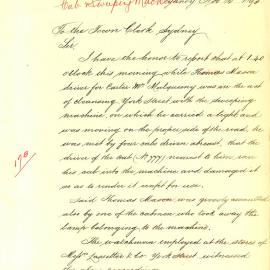 To the Town Clerk Sydney
Sir,
I have the honor to report that at 1.40
oclock this morning while Thomas Mason
driver for Carter Wm Mulqueeny was in the act
of cleansing York Street with the sweeping
machine, on which he carried a light and
was moving on the proper side of the road, he
was met by four cabs driven abreast, that the
driver of the cab (No 777) nearest to him ran
his cab into the machine and damaged it
so as to render it unfit for use.
Said Thomas Mason was grossly assaulted
also by one of the cabmen who took away the
lamp belonging to the machine.
The watchman employed at the stores of
Messrs Lassetter & Co York Street witnessed
the above